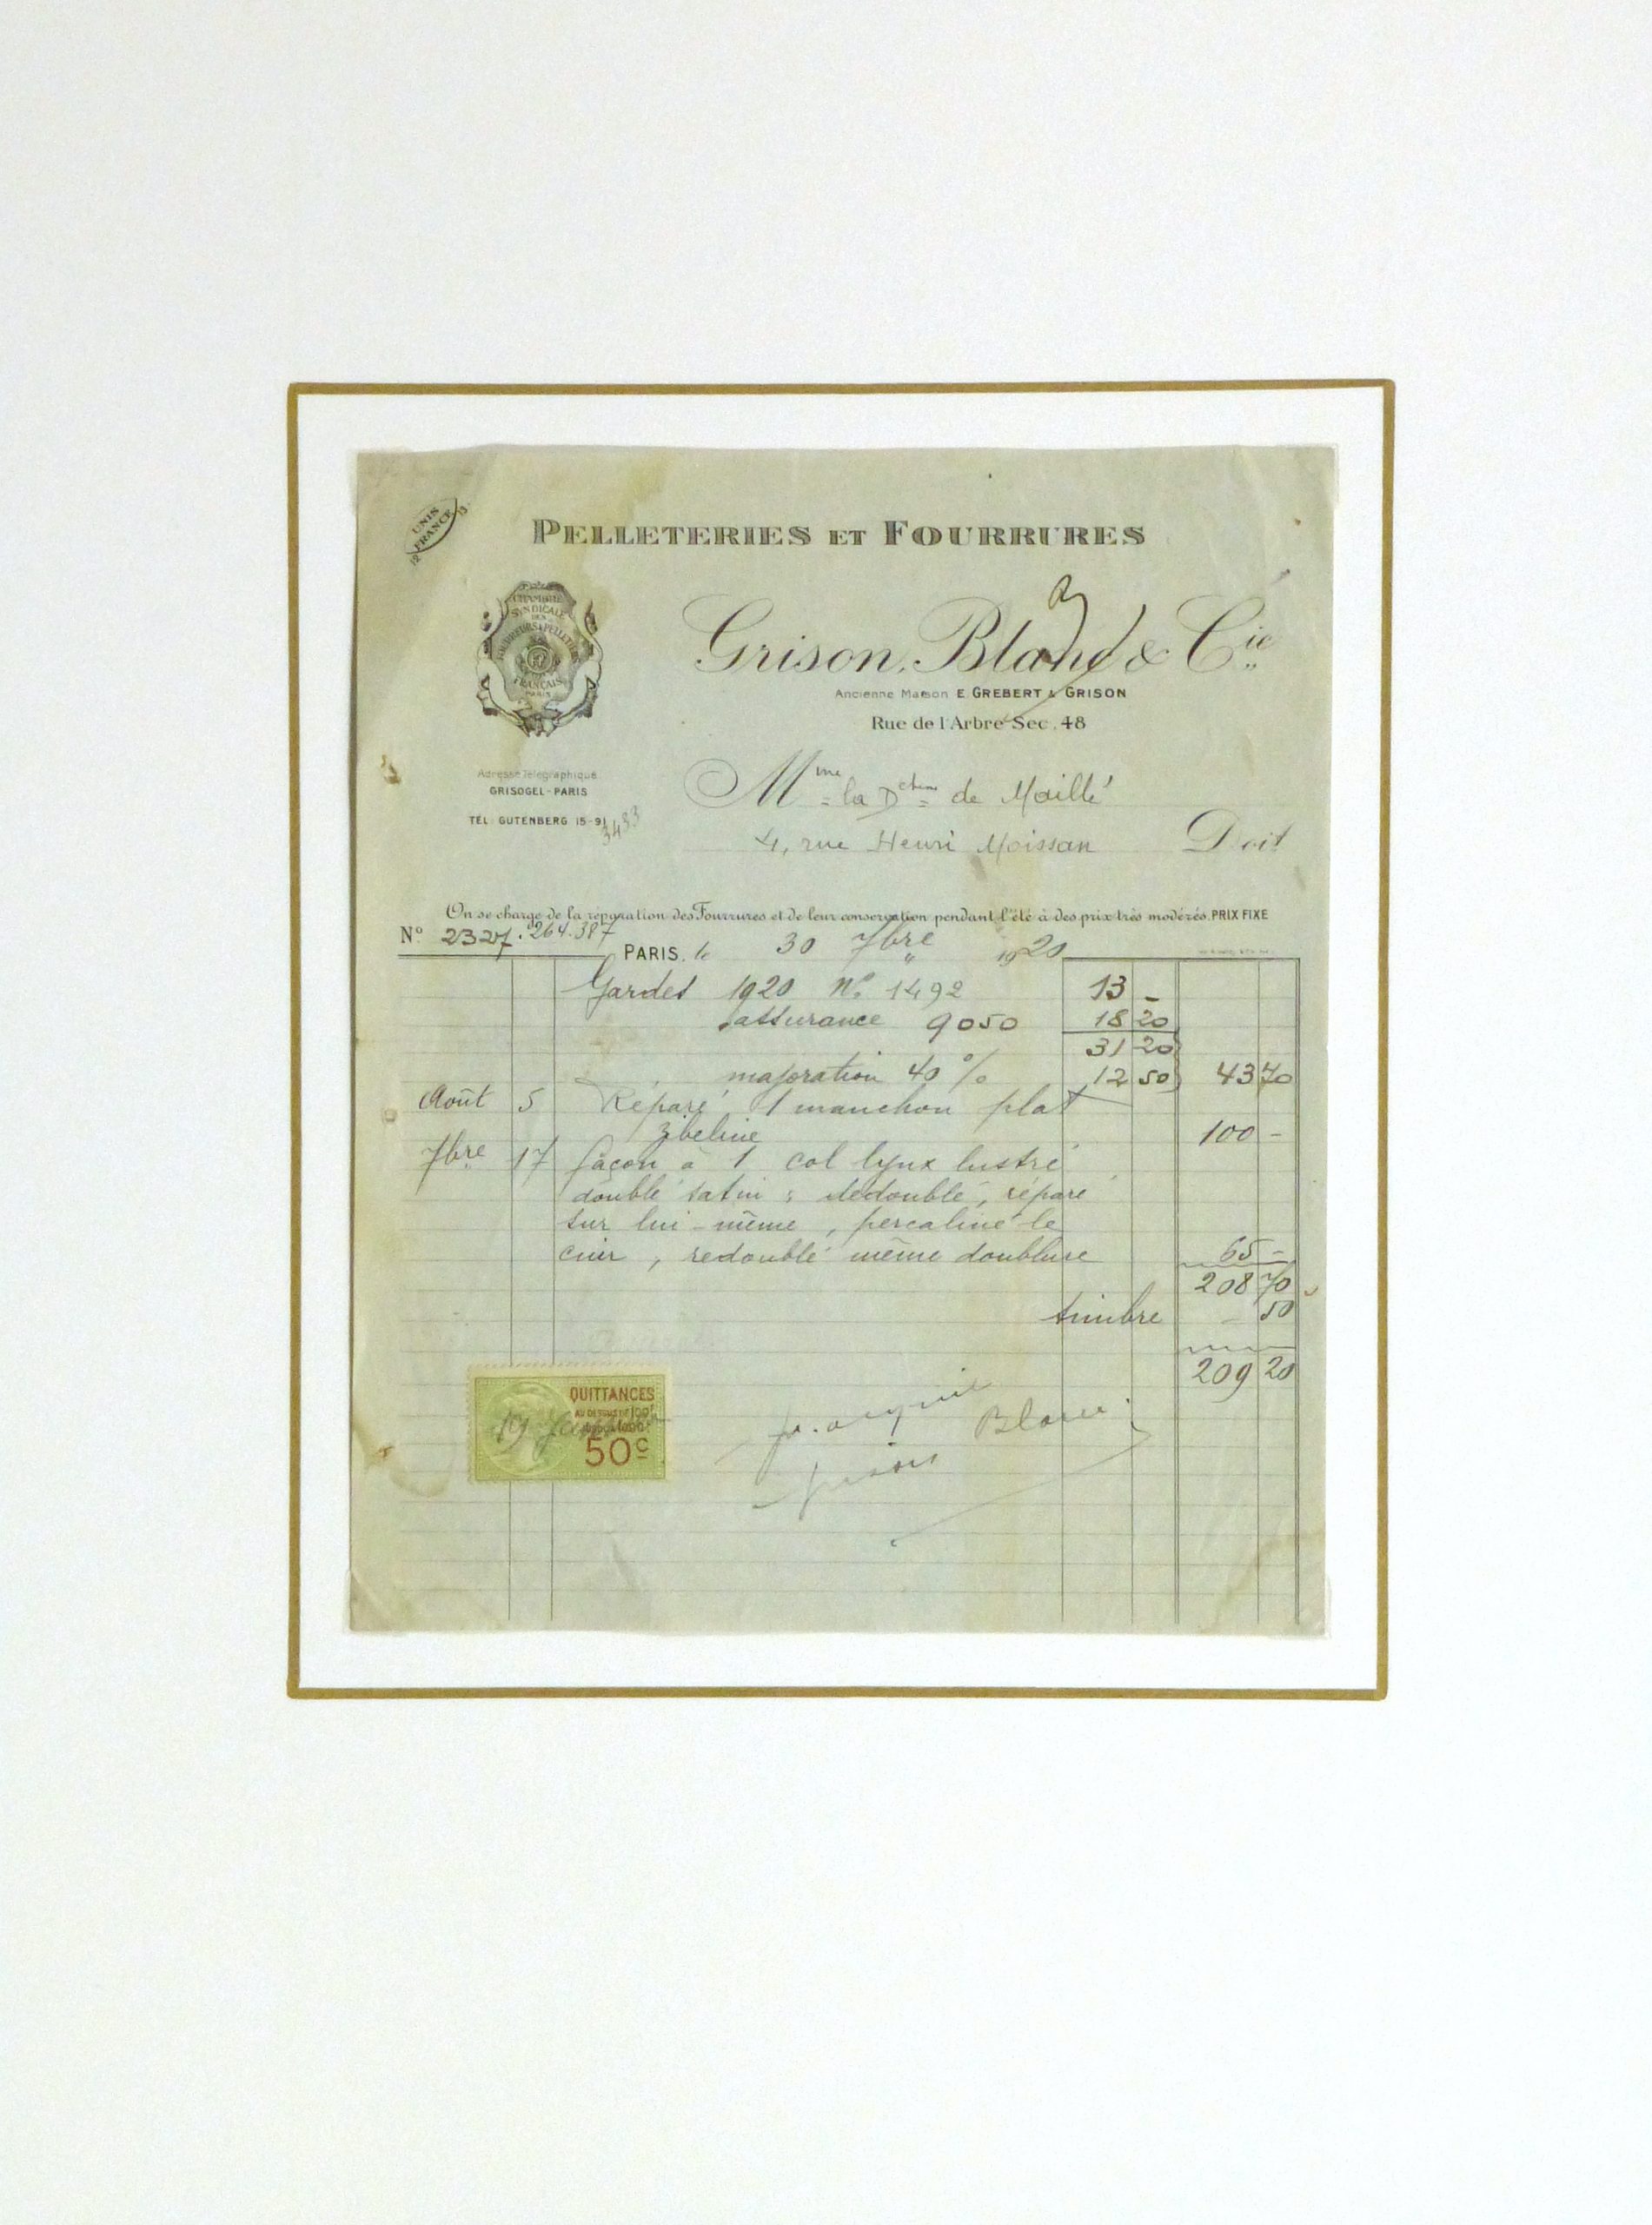 UNIS
FRANCE
PELLETERIES ET FOURRURES
CHAMBRE
SYNDICALE
DES
FOURREURS & PELLETIERS
FRANÇAIS
PARIS
Grison, Blanc & Cie
Ancienne Maison E GREBERT & GRISON
Rue de l'Arbre-Sec, 48
Adresse Télégraphique
GRISOGEL-PARIS
TÉL: GUTENBERG 15-91
3433
Mme la Dchesse de Maillé
4, rue Henri Moissan Doit
On se charge de la réparation des Fourrures et de leur conservation pendant l'été à des prix très modérés. PRIX FIXE
No 2327.264.387
PARIS, le 30 7bre 1920
Gardes 1920 No 1492 13 -
assurance 9050 18 20
31 20
majoration 40 % 12 50 43 70
Août 5 Réparé 1 manchon plat
zibeline 100 -
7bre 17 façon à 1 col lynx lustré
doublé satin : dédoublé, réparé
sur lui-même, percaliné le
cuir, redoublé même doublure 65 -
208 70
timbre - 50
209 20
QUITTANCES
AU DESSUS DE 100F
50c
19
p. acquit
Grison Blanc